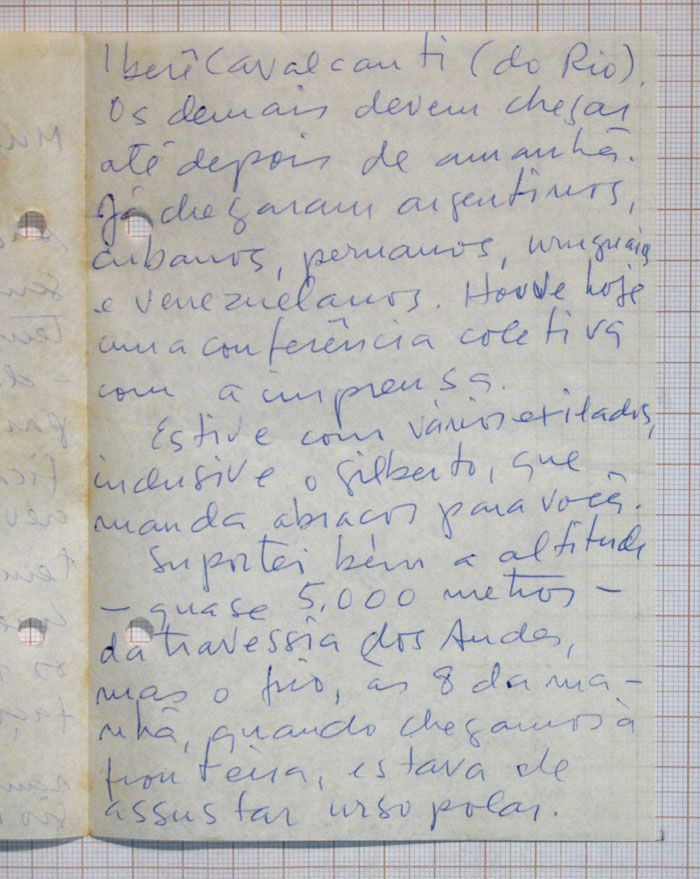 Iberê Cavalcanti (do Rio).
Os demais devem chegar
até depois de amanhã.
Já chegaram argentinos,
cubanos, peruanos, uruguaios
e venezuelanos. Houve hoje
uma conferência coletiva
com a imprensa.
Estive com vários exilados,
inclusive o Gilberto, que
manda abraços para você.
Suportei bem a altitude
— quase 5.000 metros —
da travessia dos Andes,
mas o frio, às 8 da ma-
nhã, quando chegamos à
fronteira, estava de
assustar urso polar.